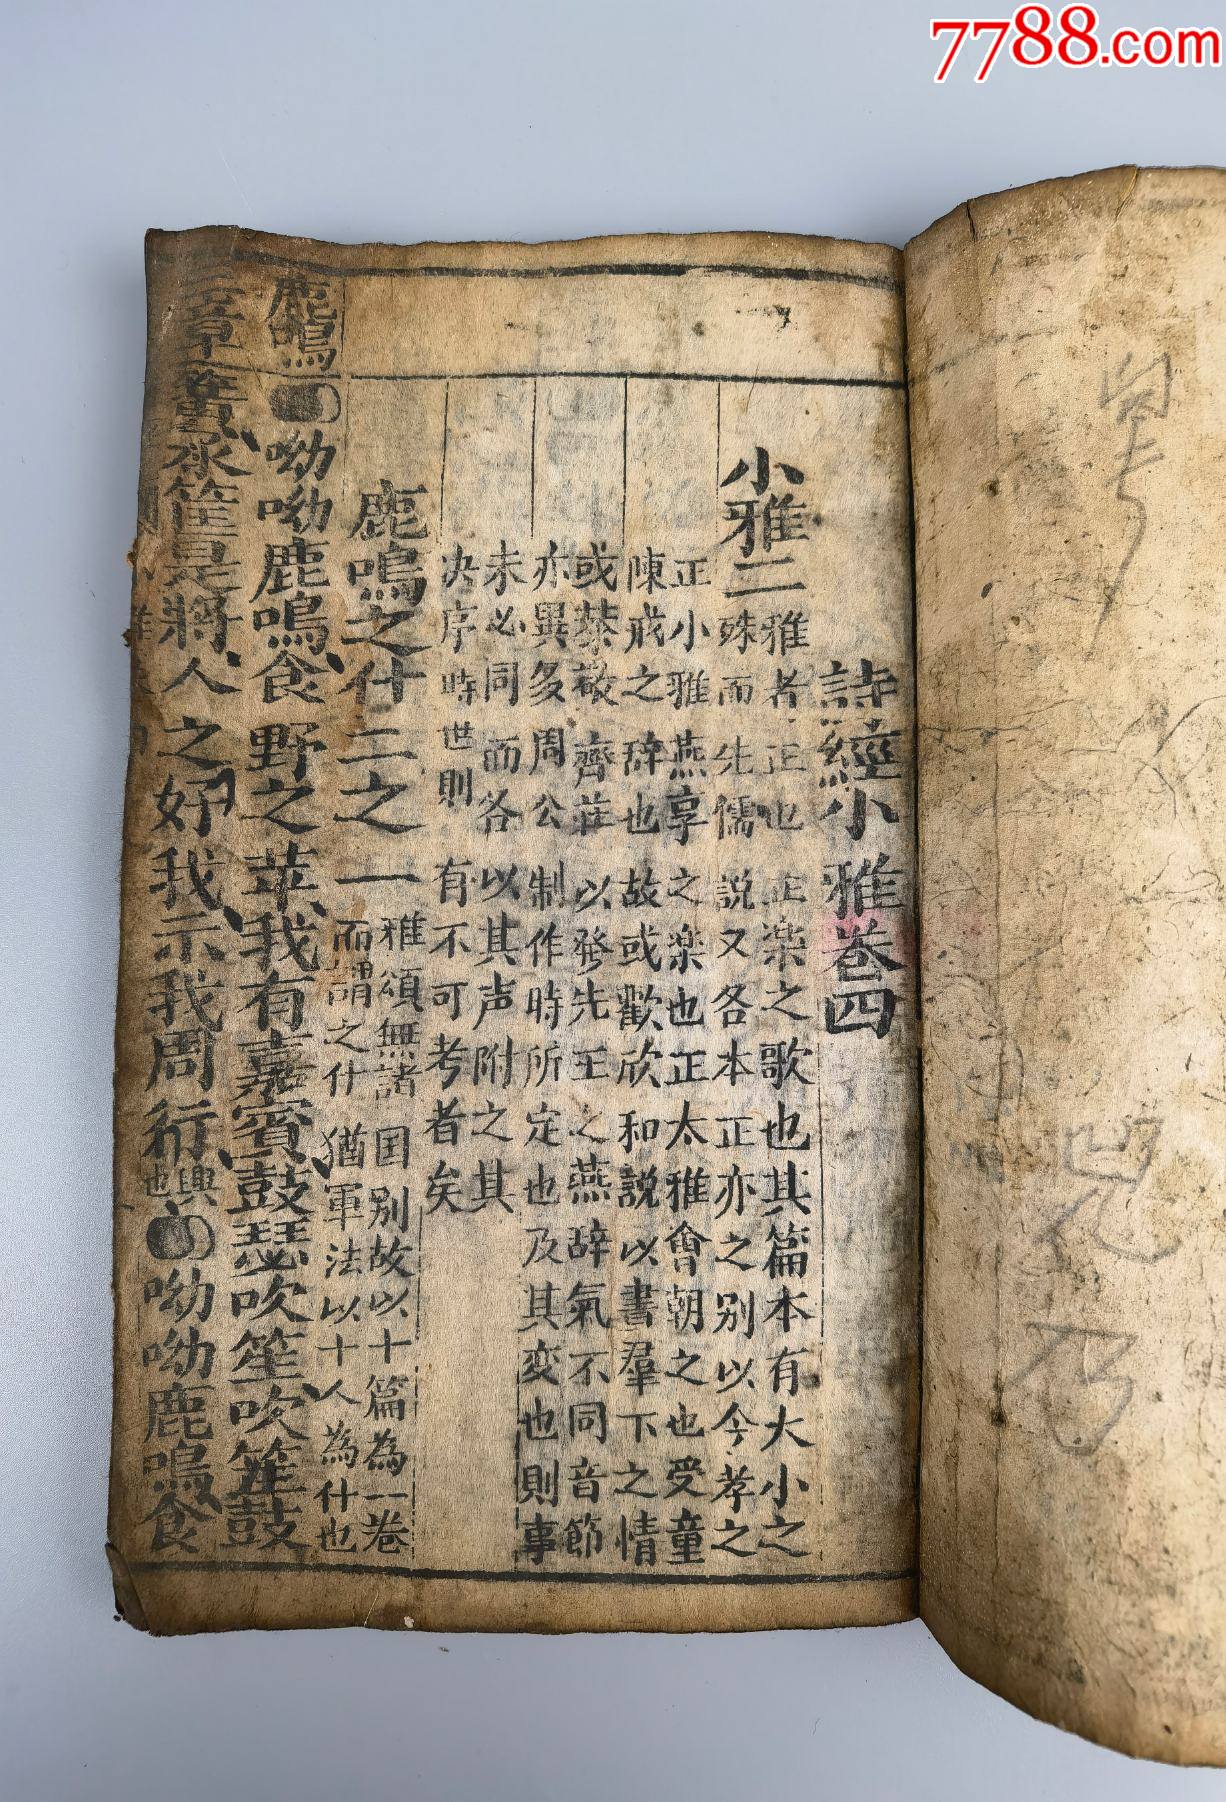 7788.com
詩經小雅卷四
小雅二
雅者正也正楽之歌也其篇本有大小之
殊而先儒說又各本正亦之别以今孝之
正小雅燕享之楽也正太雅會朝之也受童
陳戒之辞也故或歡欣和說以書羣下之情
或恭敬齊荘以發先王之燕辞氣不同音節
亦異多周公制作時所定也及其変也則事
未必同而各以其声附之其
决序時世則有不可考者矣
鹿鳴之什二之一
雅頌無諸国别故以十篇為一卷
而謂之什猶軍法以十人為什也
鹿鳴
呦呦鹿鳴食野之苹我有嘉賓鼓瑟吹笙吹笙鼓
三章
簧承筐是將人之好我示我周行興也呦呦鹿鳴食